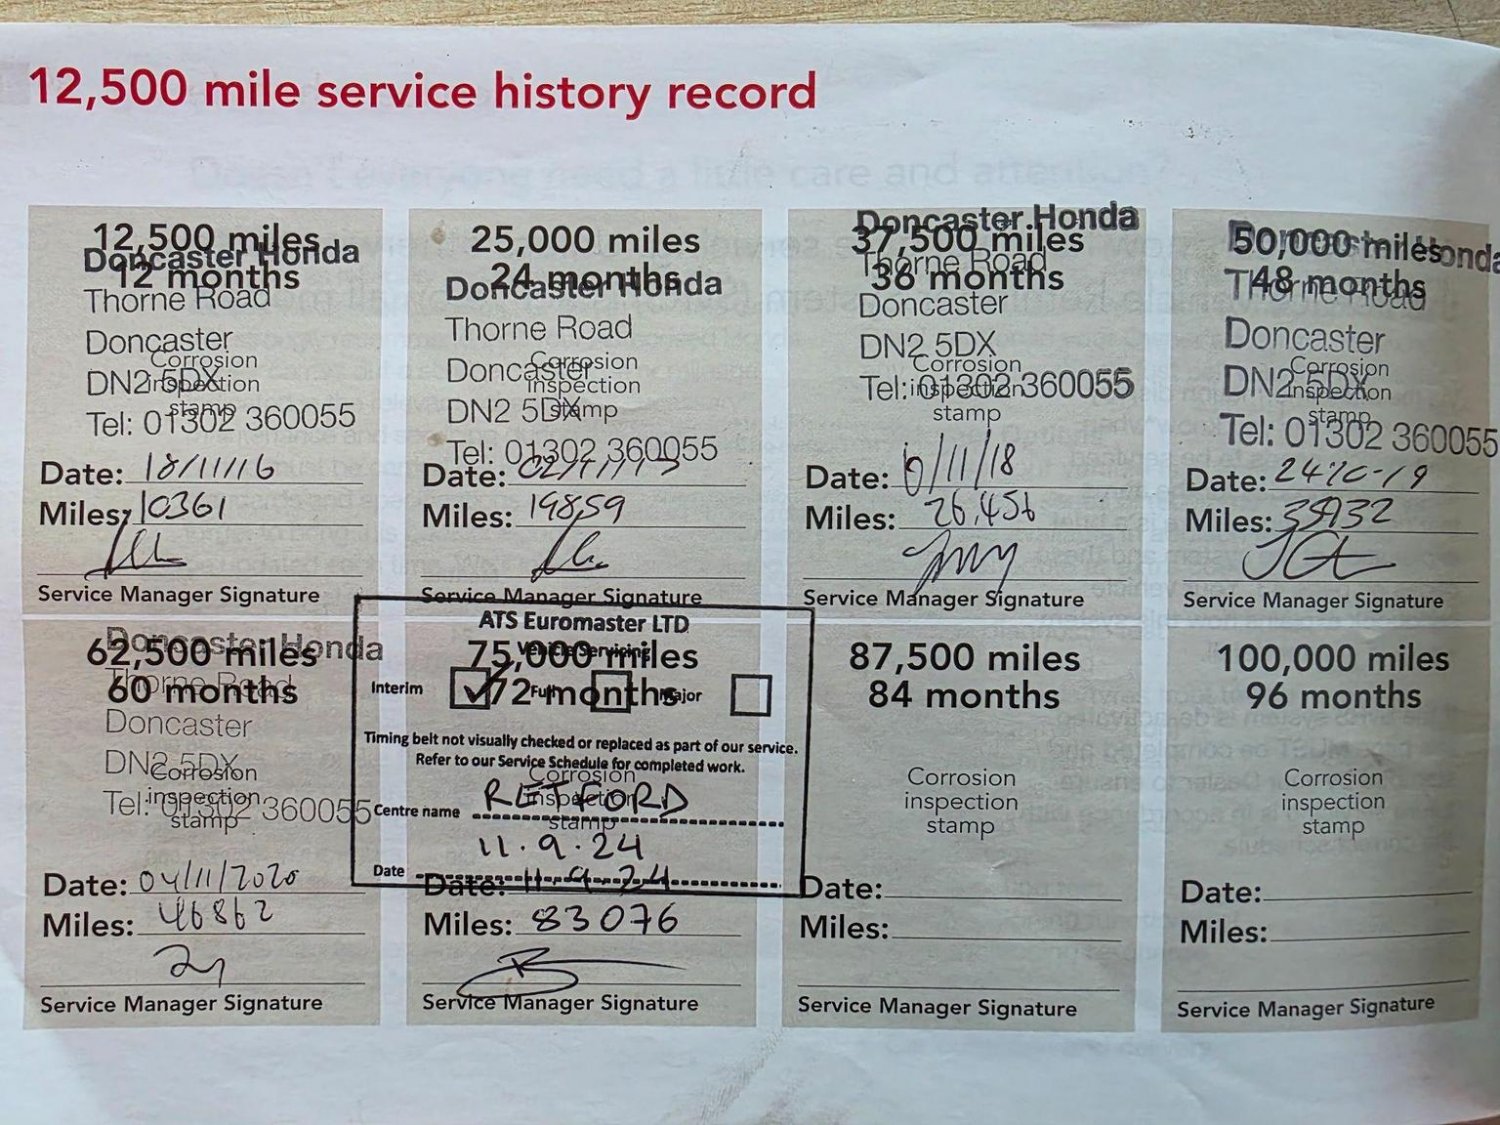 12,500 mile service history record
12,500 miles
12 months
Doncaster Honda
Thorne Road
Doncaster
DN2 5DX
Tel: 01302 360055
Corrosion
inspection
stamp
Date: 18/11/16
Miles: 10361
Service Manager Signature
25,000 miles
24 months
Doncaster Honda
Thorne Road
Doncaster
DN2 5DX
Tel: 01302 360055
Corrosion
inspection
stamp
Date:
Miles: 19859
Service Manager Signature
Doncaster Honda
37,500 miles
Thorne Road
36 months
Doncaster
DN2 5DX
Tel: 01302 360055
Corrosion
inspection
stamp
Date: /11/18
Miles: 26,456
Service Manager Signature
Doncaster Honda
50,000 miles
48 months
Thorne Road
Doncaster
DN2 5DX
Tel: 01302 360055
Corrosion
inspection
stamp
Date: 24-10-19
Miles: 35932
Service Manager Signature
Doncaster Honda
62,500 miles
Thorne Road
60 months
Doncaster
DN2 5DX
Tel: 01302 360055
Corrosion
inspection
stamp
Date: 04/11/2020
Miles: 46862
Service Manager Signature
ATS Euromaster LTD
Vehicle Servicing
75,000 miles
72 months
Interim Full Major
Timing belt not visually checked or replaced as part of our service.
Refer to our Service Schedule for completed work.
Corrosion
inspection
stamp
Centre name RETFORD
11.9.24
Date
Date: 11.9.24
Miles: 83076
Service Manager Signature
87,500 miles
84 months
Corrosion
inspection
stamp
Date:
Miles:
Service Manager Signature
100,000 miles
96 months
Corrosion
inspection
stamp
Date:
Miles:
Service Manager Signature